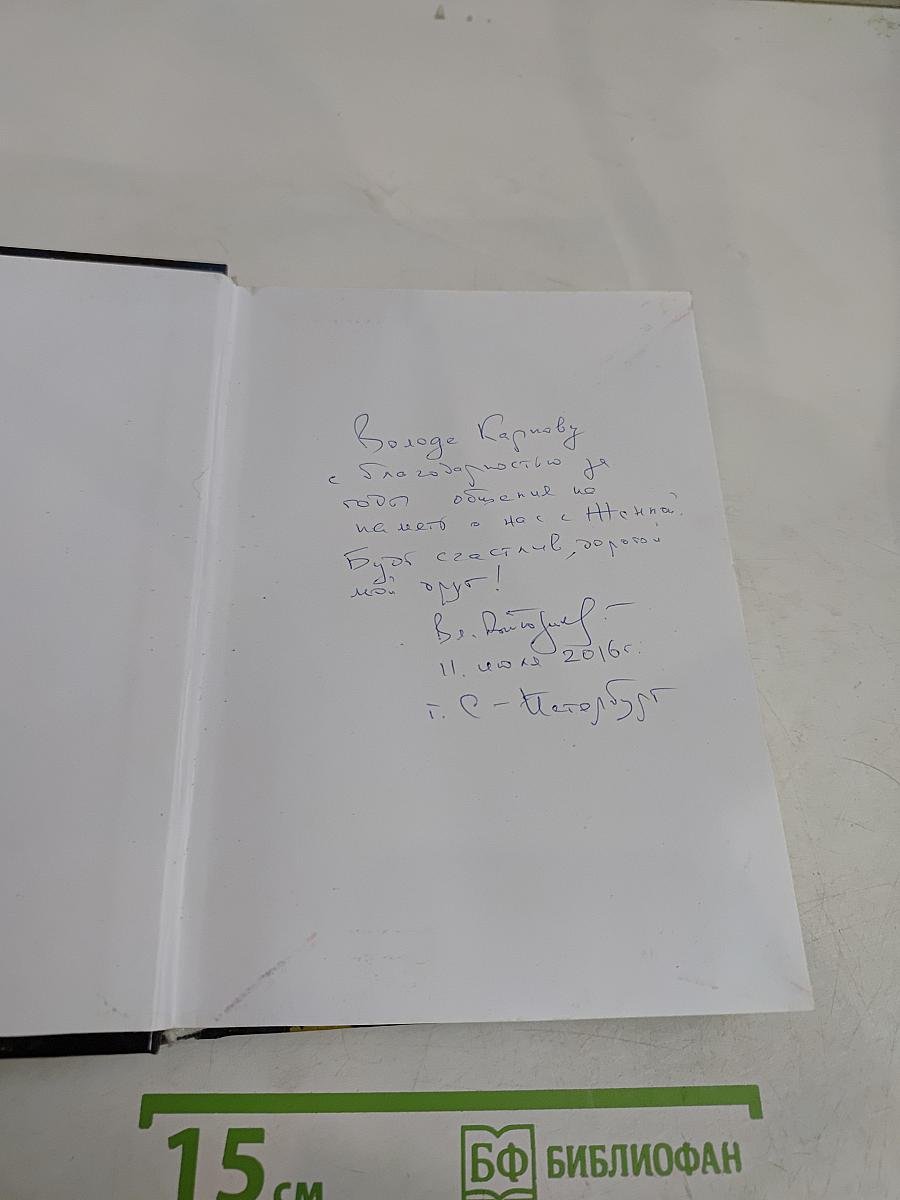 Володе Карпову
с благодарностью за
годы общения на
память о нас с Жанной.
Будь счастлив, дорогой
мой друг!
Вл.
11. июля 2016г.
г. С-Петербург
15 см
БФ БИБЛИОФАН